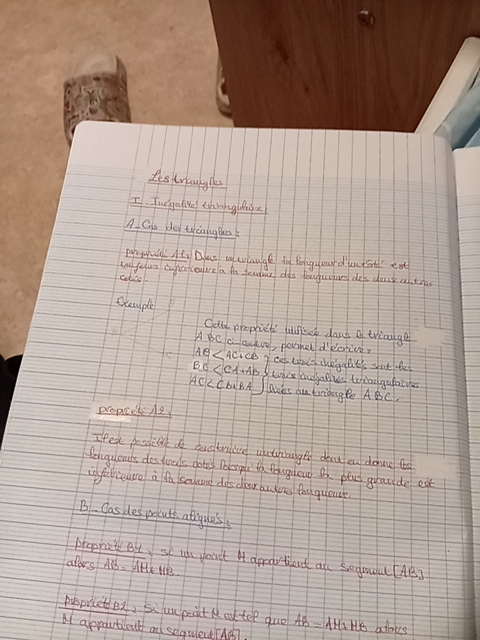 Les triangles
I - Inégalité triangulaire
A - Cas des triangles :
propriété A1 : Dans un triangle la longueur d'un côté est
toujours à la somme des longueurs des deux autres
côtés.
Exemple
Cette propriété utilisée dans le triangle
ABC permet d'écrire :
AB < AC + CB } ces trois inégalités sont les
BC < CA + AB } trois inégalités triangulaires
AC < CB + BA } liées au triangle ABC.
propriété A2 :
Il est possible de construire un triangle dont on donne les
longueurs des trois côtés lorsque la longueur la plus grande est
inférieure à la somme des deux autres longueurs.
B - Cas des points alignés :
propriété B1 : si un point M appartient au segment [AB]
alors AB = AM + MB.
propriété B2 : Si un point M est tel que AB = AM + MB alors
M appartient au segment [AB].